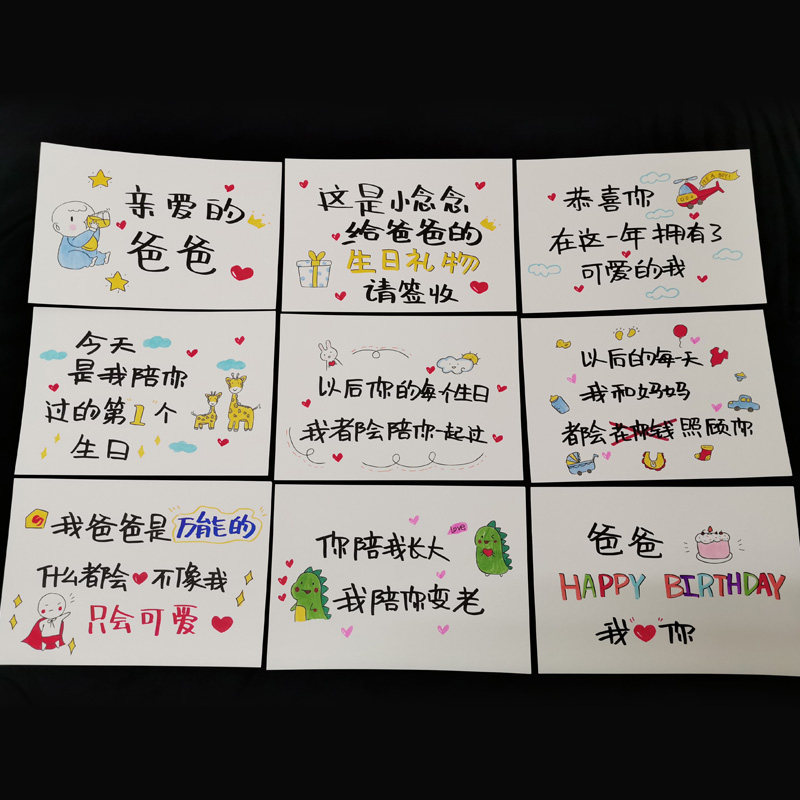 亲爱的
爸爸
这是小念念
给爸爸的
生日礼物
请签收
恭喜你
在这一年拥有了
可爱的我
今天
是我陪你
过的第1个
生日
以后你的每个生日
我都会陪你一起过
以后的每一天
我和妈妈
都会花你钱照顾你
我爸爸是万能的
什么都会不像我
只会可爱
love
你陪我长大
我陪你变老
爸爸
HAPPY BIRTHDAY
我“❤”你